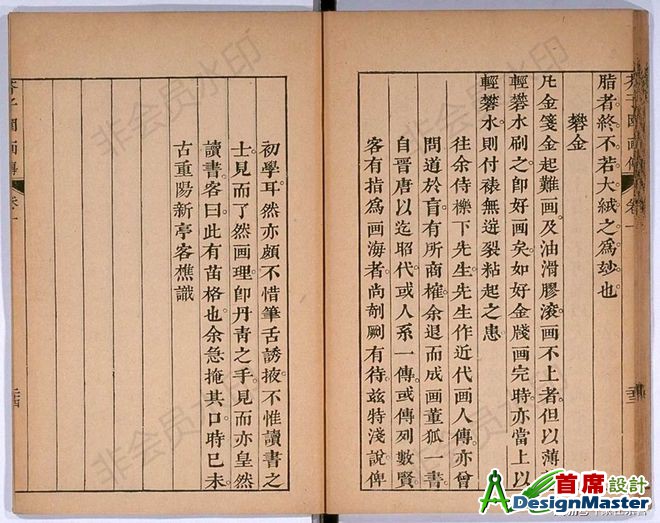 脂者終不若大絨之爲玅也
礬金
凡金箋金起難画。及油滑膠滾。画不上者。但以薄
輕礬水刷之。卽好画矣。如好金牋画完時。亦當上以
輕礬水。則付裱無迸裂粘起之患。
往余侍櫟下先生。先生作近代画人傳。亦曾
問道於盲。有所商榷。余退而成画董狐一書
自晉唐以迄昭代。或人系一傳。或傳列數賢
客有指爲画海者。尚剞劂有待。玆特淺說俾
初學耳。然亦頗不惜筆舌誘掖。不惟讀書之
士見而了然画理。卽丹青之手。見而亦皇然
讀書。客曰。此有苗格也。余急掩其口。時己未
古重陽新亭客樵識
非会员水印
非会员水印
非会员水印
非会员水印
首席設計
DesignMaster